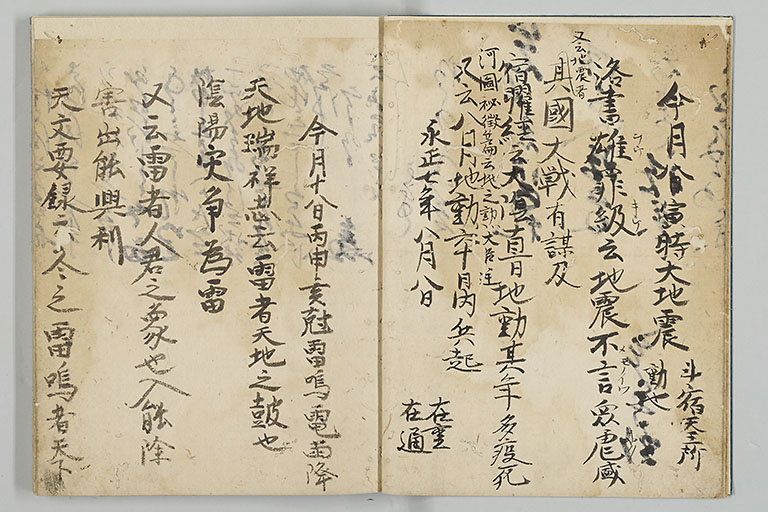 今月八日寅時大地震 斗宿天王所動也
洛書雄罪級云地震不言衆虐盛
又云地震者
其國大戦有謀及
宿曜経云大陰直日地動其年多疫死
河圖秘徴篇云地之動大臣注
又云八日地動六十日内兵起
永正七年八月八日
在重
在通
今月十八日丙申亥尅雷鳴電雨降
天地瑞祥志云雷者天地之鼓也
陰陽灾争為雷
又云雷者人君之象也入能除
害出能興利
天文要録云冬之雷鳴者天下